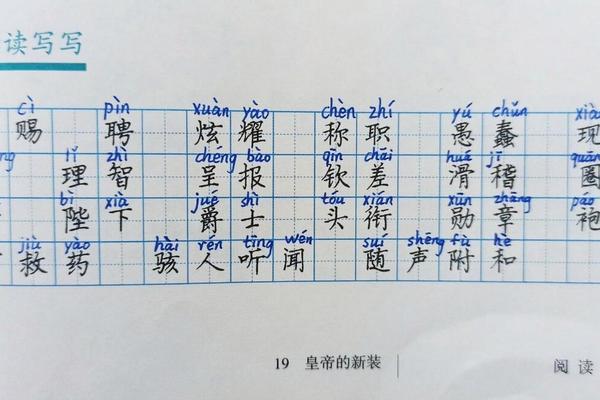 读写写
cì pìn xuàn yào chèn zhí yú chǔn xià
赐 聘 炫 耀 称 职 愚 蠢 现
lǐ zhì chéng bào qīn chāi huá jī quān
理 智 呈 报 钦 差 滑 稽 圈
bì xià jué shì tóu xián xūn zhāng páo
陛 下 爵 士 头 衔 勋 章 袍
jiù yào hài rén tīng wén suí shēng fù hè
救 药 骇 人 听 闻 随 声 附 和
19 皇帝的新装
阅 读